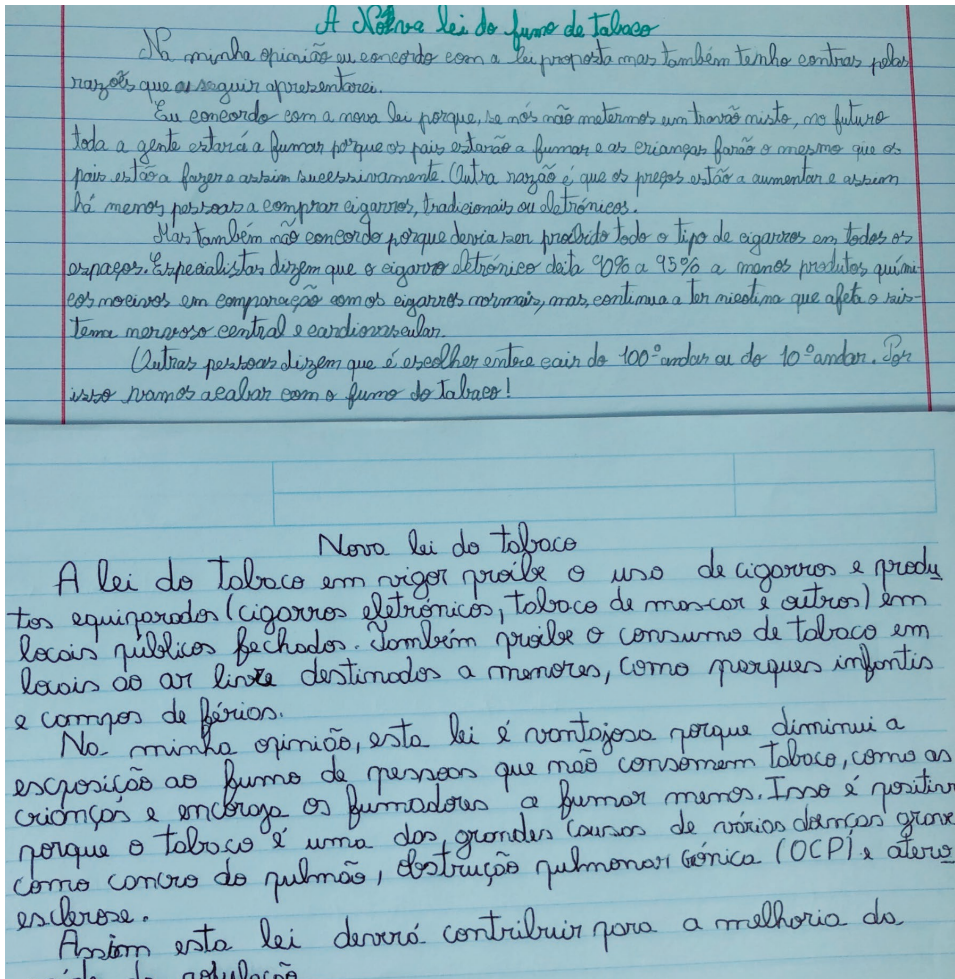 A Nova lei do fumo de tabaco
Na minha opinião eu concordo com a lei proposta mas também tenho contras pelas
razões que a seguir apresentarei.
Eu concordo com a nova lei porque, se nós não metermos um travão nisto, no futuro
toda a gente estará a fumar porque os pais estarão a fumar e as crianças farão o mesmo que os
pais estão a fazer e assim sucessivamente. Outra razão é que os preços estão a aumentar e assim
há menos pessoas a comprar cigarros, tradicionais ou eletrónicos.
Mas também não concordo porque devia ser proibido todo o tipo de cigarros em todos os
espaços. Especialistas dizem que o cigarro eletrónico deita 90% a 95% a menos produtos quími
cos nocivos em comparação com os cigarros normais, mas, continua a ter nicotina que afeta o sis-
tema nervoso central e cardiovascular.
Outras pessoas dizem que é escolher entre cair do 100º andar ou do 10º andar. Por
isso vamos acabar com o fumo do tabaco!
Nova lei do tabaco
A lei do tabaco em vigor proíbe o uso de cigarros e produ
tos equiparados (cigarros eletrónicos, tabaco de mascar e outros) em
locais públicos fechados. Também proíbe o consumo de tabaco em
locais ao ar livre destinados a menores, como parques infantis
e campos de férias.
Na minha opinião, esta lei é vantajosa porque diminui a
escposição ao fumo de pessoas que não consomem tabaco, como as
crianças e encoraga os fumadores a fumar menos. Isso é positivo
porque o tabaco é uma das grandes causas de vários doenças grave
como cancro do pulmão, obstrução pulmonar crónica (OCP) e atero
esclerose.
Assim esta lei deverá contribuir para a melhoria da
população